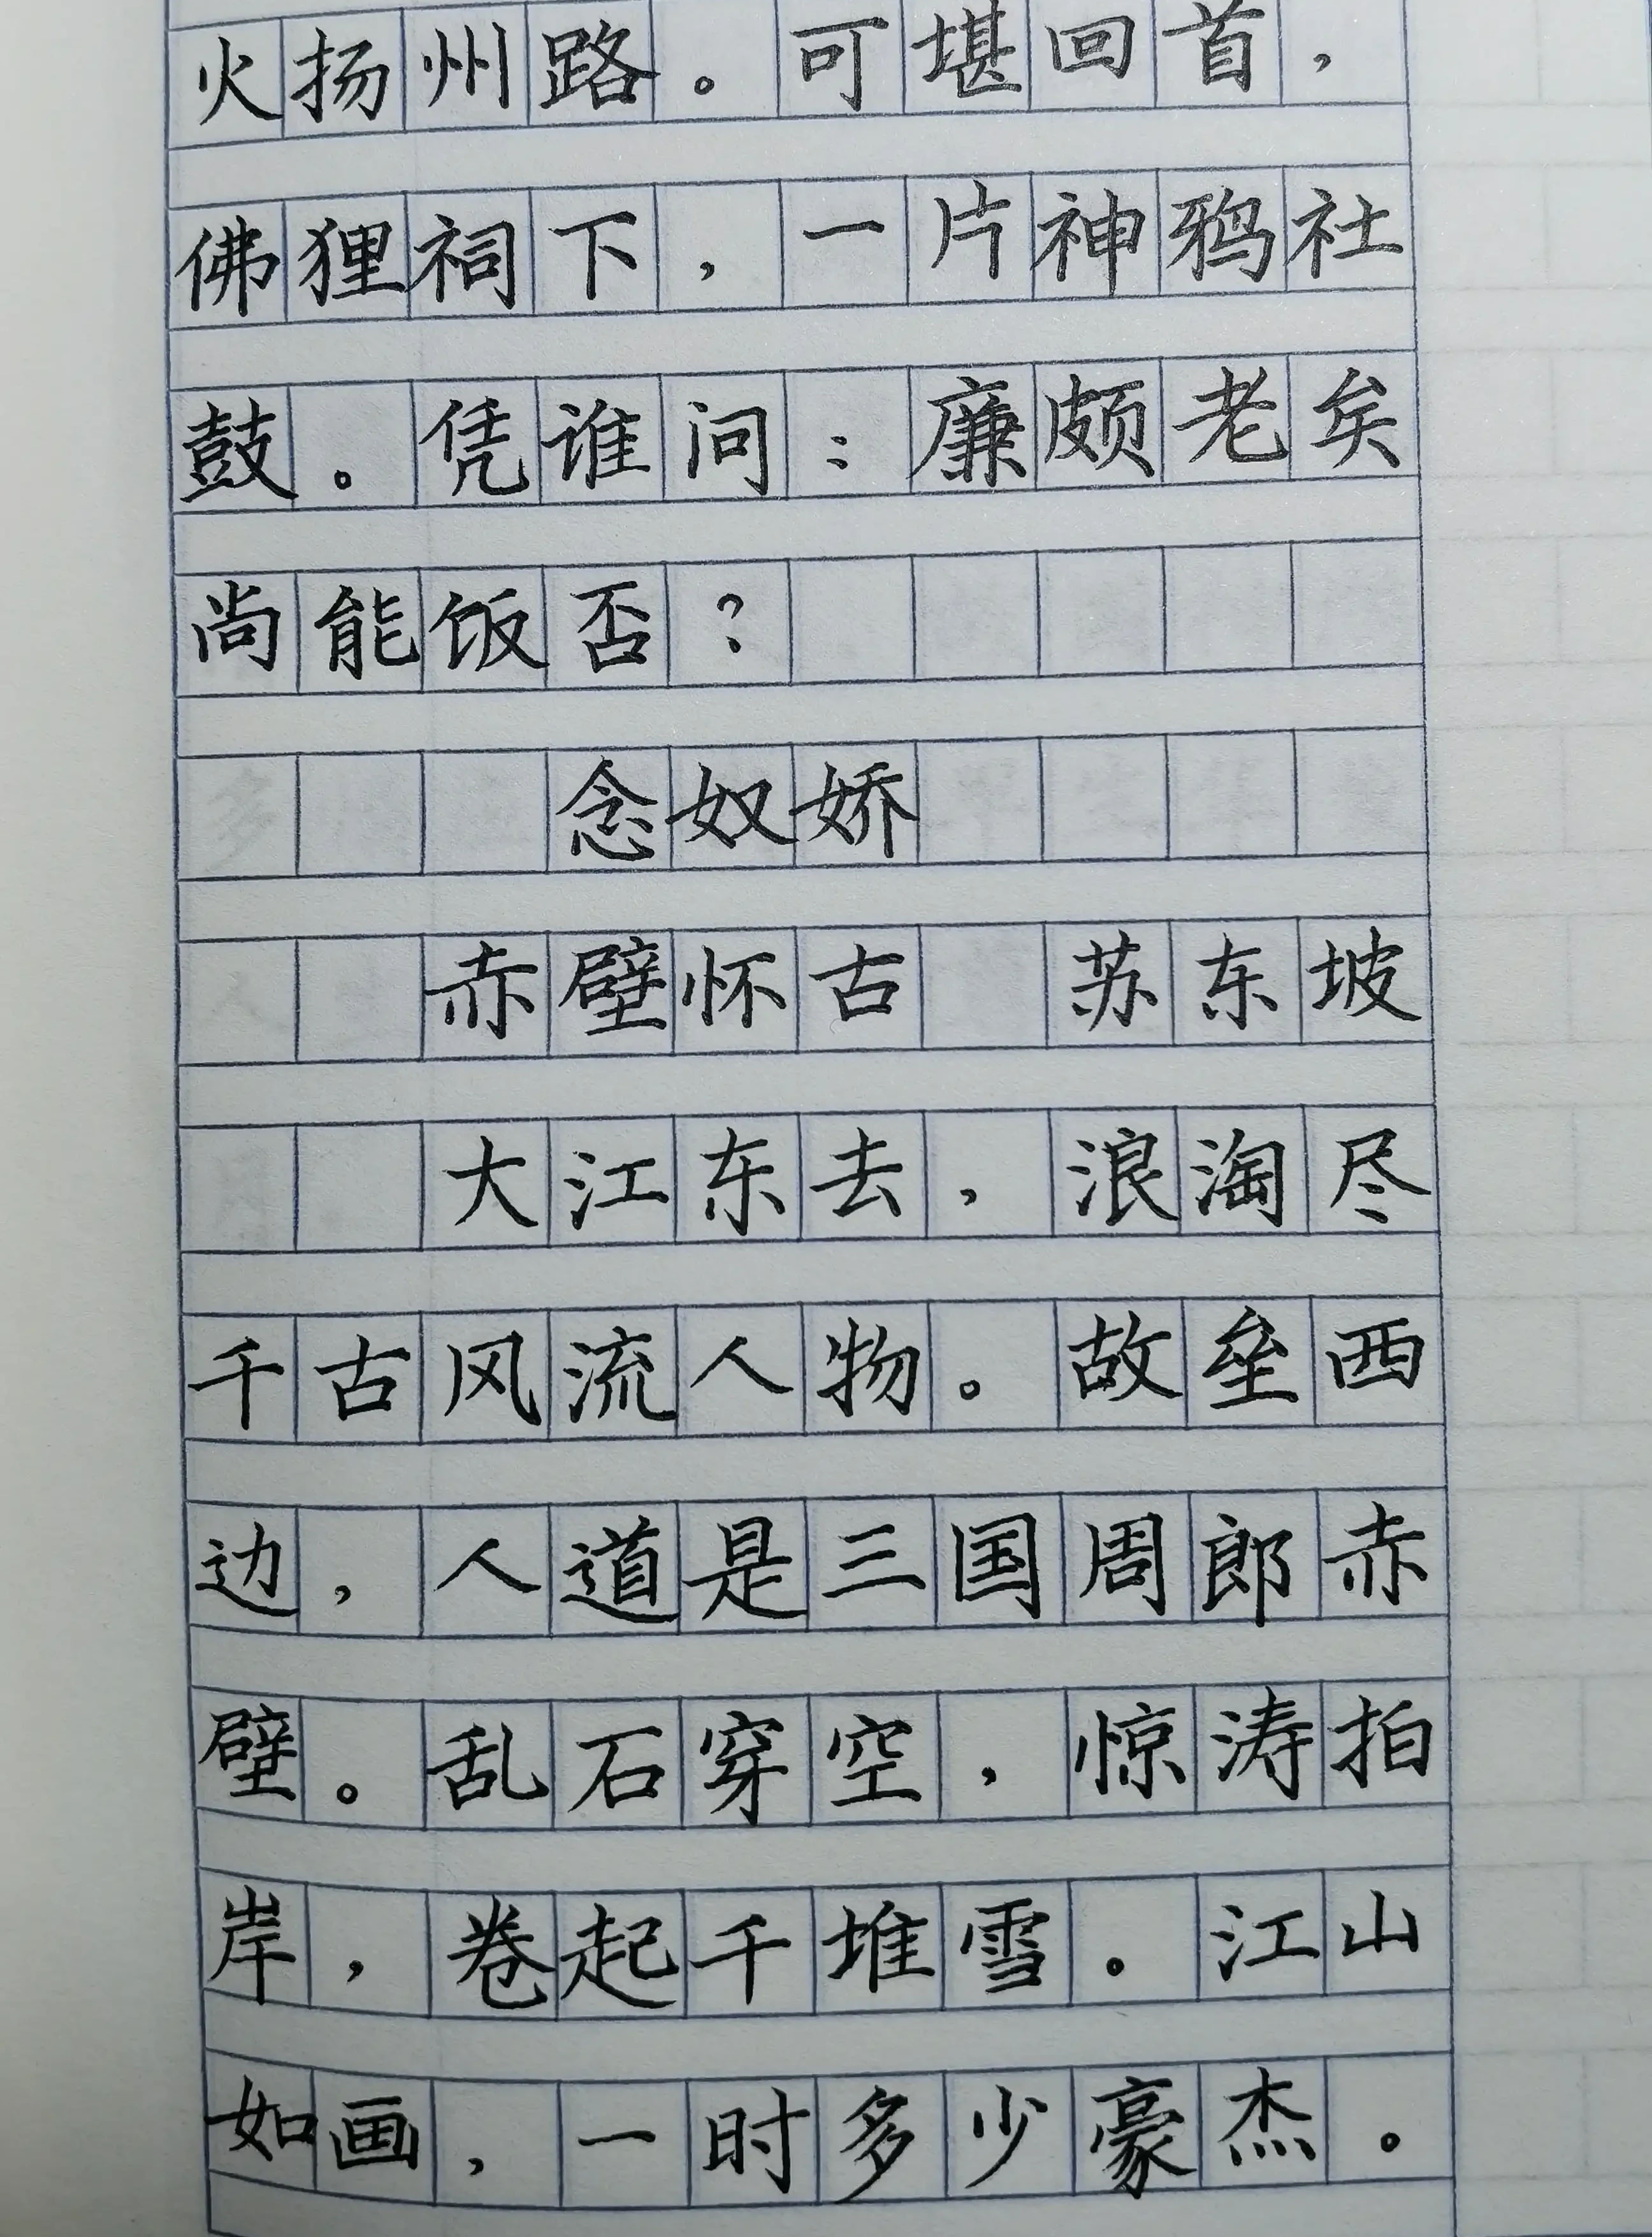 火扬州路。可堪回首，
佛狸祠下，一片神鸦社
鼓。凭谁问：廉颇老矣
尚能饭否？
念奴娇
赤壁怀古 苏东坡
大江东去，浪淘尽
千古风流人物。故垒西
边，人道是三国周郎赤
壁。乱石穿空，惊涛拍
岸，卷起千堆雪。江山
如画，一时多少豪杰。